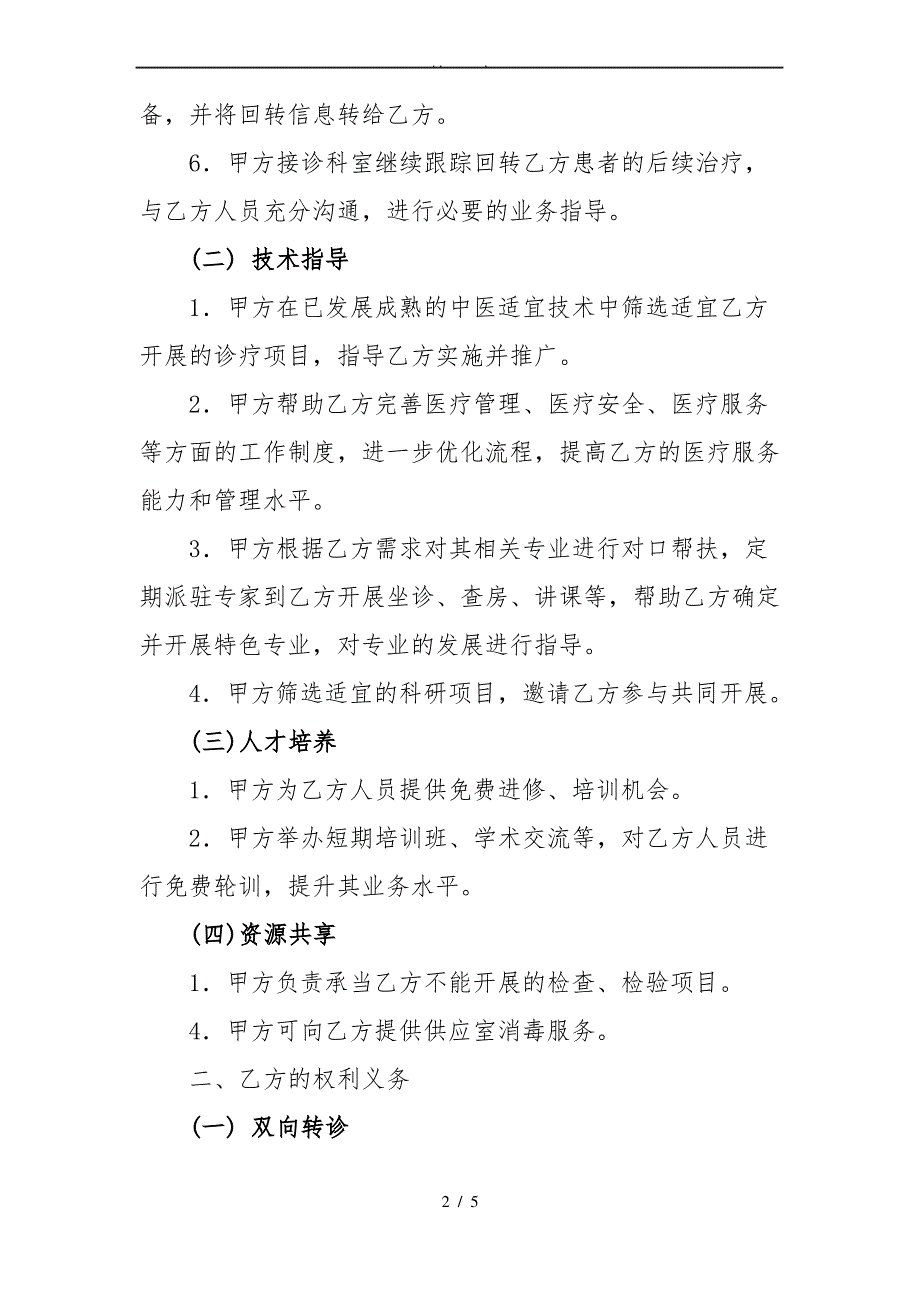 备，并将回转信息转给乙方。
6．甲方接诊科室继续跟踪回转乙方患者的后续治疗，
与乙方人员充分沟通，进行必要的业务指导。
(二) 技术指导
1．甲方在已发展成熟的中医适宜技术中筛选适宜乙方
开展的诊疗项目，指导乙方实施并推广。
2．甲方帮助乙方完善医疗管理、医疗安全、医疗服务
等方面的工作制度，进一步优化流程，提高乙方的医疗服务
能力和管理水平。
3．甲方根据乙方需求对其相关专业进行对口帮扶，定
期派驻专家到乙方开展坐诊、查房、讲课等，帮助乙方确定
并开展特色专业，对专业的发展进行指导。
4．甲方筛选适宜的科研项目，邀请乙方参与共同开展。
(三)人才培养
1．甲方为乙方人员提供免费进修、培训机会。
2．甲方举办短期培训班、学术交流等，对乙方人员进
行免费轮训，提升其业务水平。
(四)资源共享
1．甲方负责承当乙方不能开展的检查、检验项目。
4．甲方可向乙方提供供应室消毒服务。
二、乙方的权利义务
(一) 双向转诊
2 / 5